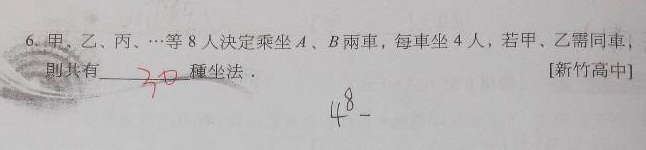 6. 甲、乙、丙、…等 8 人決定乘坐 A、B 兩車，每車坐 4 人，若甲、乙需同車，
則共有 30 種坐法．  [新竹高中]
4⁸ -